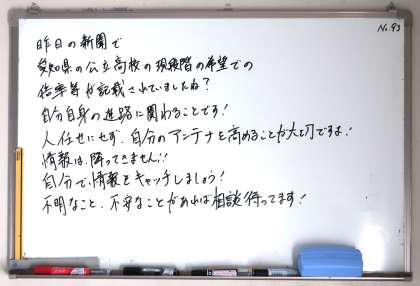 No.93
昨日の新聞で
愛知県の公立高校の現段階の希望での
倍率等が記載されていましたね？
自分自身の進路に関わることです！
人任せにせず、自分のアンテナを高めることが大切ですよ！
情報は、降ってきません！！
自分で情報をキャッチしましょう！
不明なこと、不安なことがあれば相談待ってます！